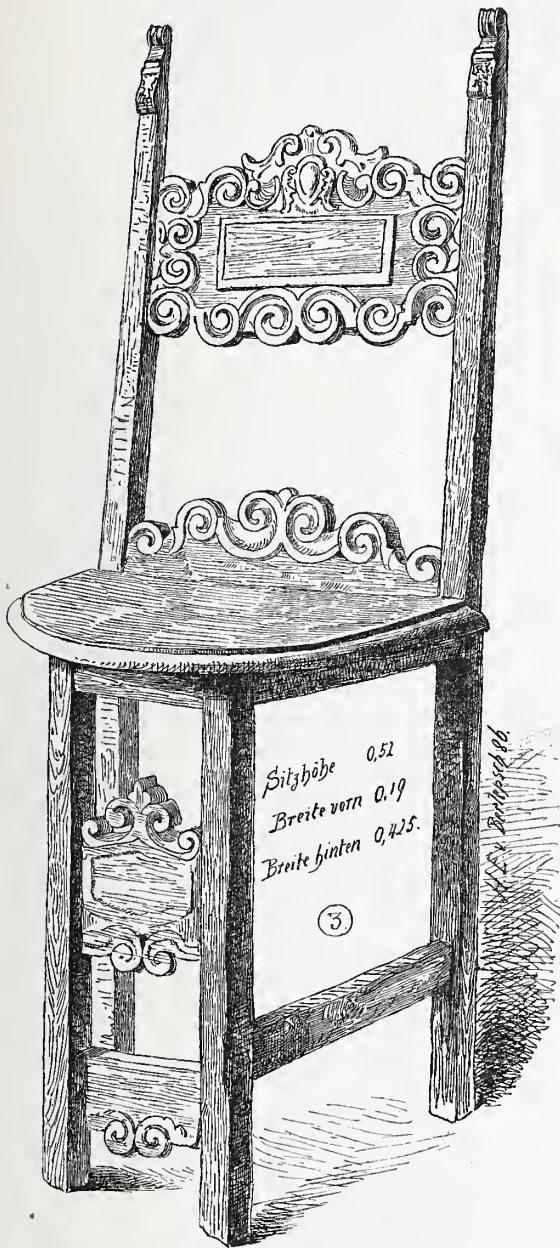 Sitzhöhe 0,52
Breite vorn 0,19
Breite hinten 0,425.
3.
v. Berlepsch 86.